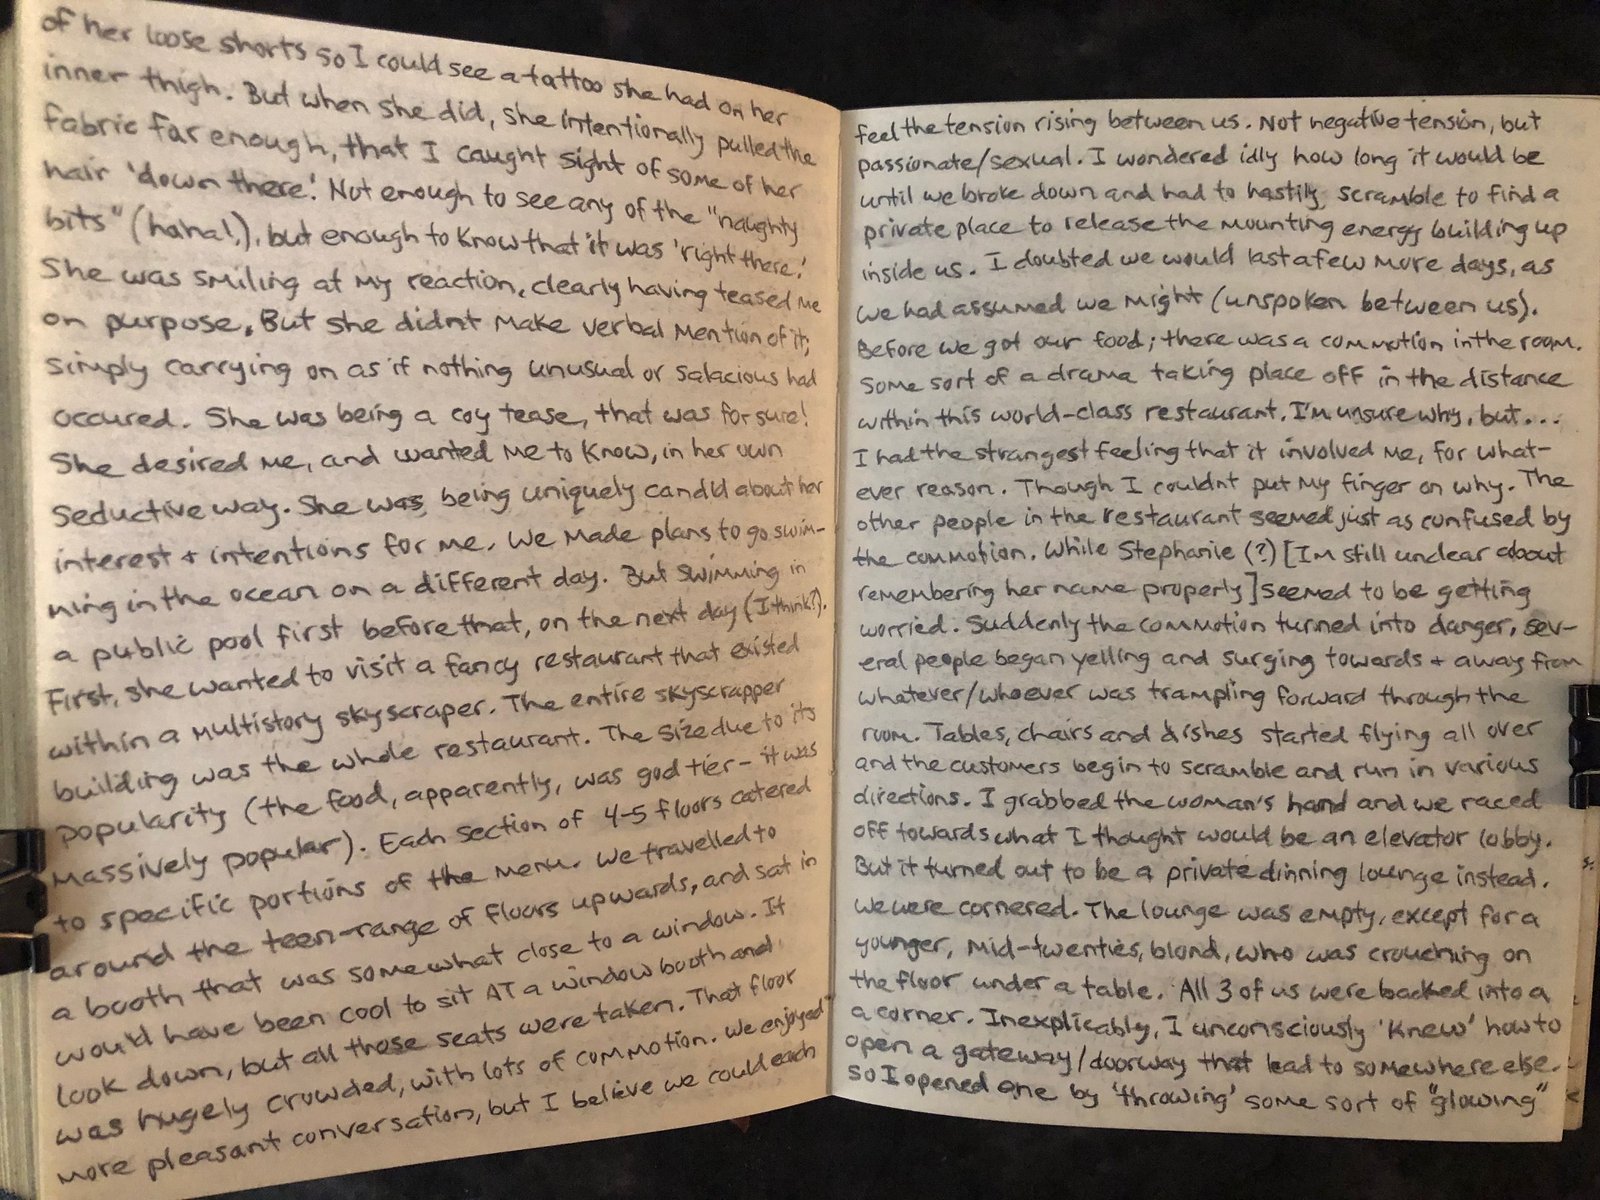 of her loose shorts so I could see a tattoo she had on her
inner thigh. But when she did, she intentionally pulled the
fabric far enough, that I caught sight of some of her
hair 'down there'. Not enough to see any of the "naughty
bits" (haha!), but enough to know that it was 'right there'.
She was smiling at my reaction, clearly having teased me
on purpose. But she didnt make verbal mention of it;
simply carrying on as if nothing unusual or salacious had
occured. She was being a coy tease, that was for sure!
She desired me, and wanted me to know, in her own
seductive way. She was being uniquely candid about her
interest + intentions for me. We made plans to go swim-
ming in the ocean on a different day. But swimming in
a public pool first before that, on the next day (I think?).
First, she wanted to visit a fancy restaurant that existed
within a multistory skyscraper. The entire skyscrapper
building was the whole restaurant. The size due to its
popularity (the food, apparently, was god tier - it was
massively popular). Each section of 4-5 floors catered
to specific portions of the menu. We travelled to
around the teen-range of floors upwards, and sat in
a booth that was somewhat close to a window. It
would have been cool to sit AT a window booth and
look down, but all those seats were taken. That floor
was hugely crowded, with lots of commotion. We enjoyed
more pleasant conversation, but I believe we could each
feel the tension rising between us. Not negative tension, but
passionate/sexual. I wondered idly how long it would be
until we broke down and had to hastily scramble to find a
private place to release the mounting energy building up
inside us. I doubted we would last a few more days, as
we had assumed we might (unspoken between us).
Before we got our food; there was a commotion in the room.
Some sort of a drama taking place off in the distance
within this world-class restaurant. I'm unsure why, but...
I had the strangest feeling that it involved me, for what-
ever reason. Though I couldnt put my finger on why. The
other people in the restaurant seemed just as confused by
the commotion. While Stephanie (?) [I'm still unclear about
remembering her name properly] seemed to be getting
worried. Suddenly the commotion turned into danger, sev-
eral people began yelling and surging towards + away from
whatever/whoever was trampling forward through the
room. Tables, chairs and dishes started flying all over
and the customers begin to scramble and run in various
directions. I grabbed the woman's hand and we raced
off towards what I thought would be an elevator lobby.
But it turned out to be a private dinning lounge instead.
We were cornered. The lounge was empty, except for a
younger, mid-twenties, blond, who was crouching on
the floor under a table. All 3 of us were backed into a
a corner. Inexplicably, I unconsciously 'knew' how to
open a gateway/doorway that lead to somewhere else.
So I opened one by 'throwing' some sort of "glowing"